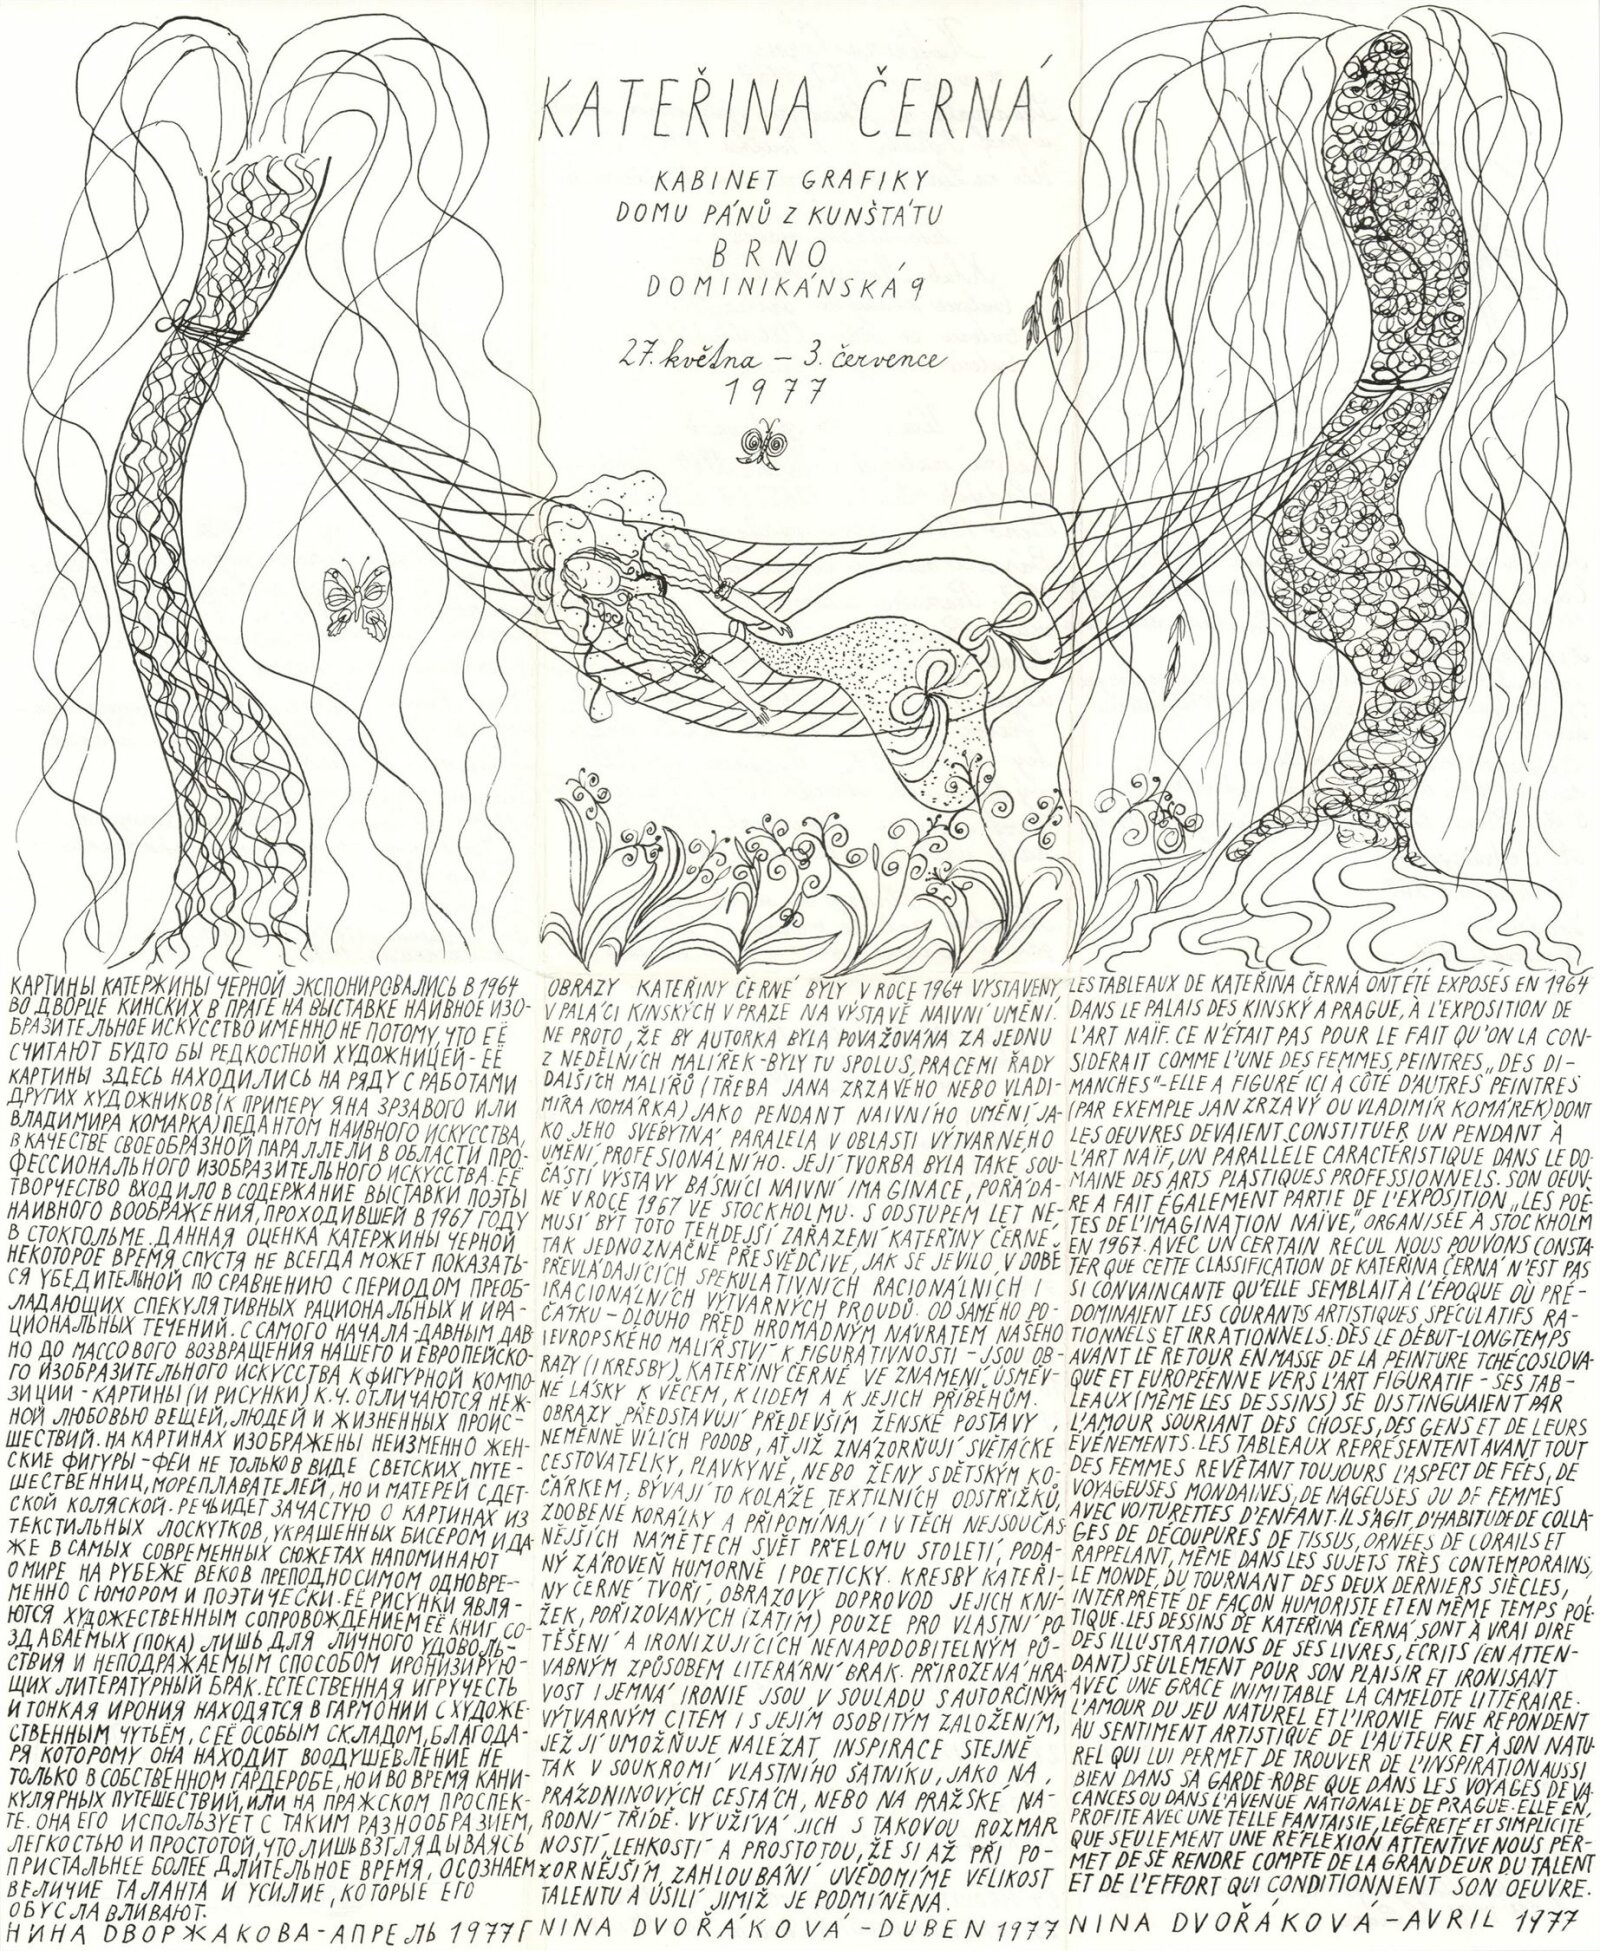 KATEŘINA ČERNÁ
KABINET GRAFIKY
DOMU PÁNŮ Z KUNŠTÁTU
BRNO
DOMINIKÁNSKÁ 9
27. května – 3. července
1977
КАРТИНЫ КАТЕРЖИНЫ ЧЕРНОЙ ЭКСПОНИРОВАЛИСЬ В 1964
ВО ДВОРЦЕ КИНСКИХ В ПРАГЕ НА ВЫСТАВКЕ НАИВНОЕ ИЗО-
БРАЗИТЕЛЬНОЕ ИСКУССТВО ИМЕННО НЕ ПОТОМУ, ЧТО ЕЁ
СЧИТАЮТ БУДТО БЫ РЕДКОСТНОЙ ХУДОЖНИЦЕЙ - ЕЁ
КАРТИНЫ ЗДЕСЬ НАХОДИЛИСЬ НА РЯДУ С РАБОТАМИ
ДРУГИХ ХУДОЖНИКОВ (К ПРИМЕРУ ЯНА ЗРЗАВОГО ИЛИ
ВЛАДИМИРА КОМАРКА) ПЕДАНТОМ НАИВНОГО ИСКУССТВА,
В КАЧЕСТВЕ СВОЕОБРАЗНОЙ ПАРАЛЛЕЛИ В ОБЛАСТИ ПРО-
ФЕССИОНАЛЬНОГО ИЗОБРАЗИТЕЛЬНОГО ИСКУССТВА. ЕЁ
ТВОРЧЕСТВО ВХОДИЛО В СОДЕРЖАНИЕ ВЫСТАВКИ ПОЭТЫ
НАИВНОГО ВООБРАЖЕНИЯ, ПРОХОДИВШЕЙ В 1967 ГОДУ
В СТОКГОЛЬМЕ. ДАННАЯ ОЦЕНКА КАТЕРЖИНЫ ЧЕРНОЙ
НЕКОТОРОЕ ВРЕМЯ СПУСТЯ НЕ ВСЕГДА МОЖЕТ ПОКАЗАТЬ-
СЯ УБЕДИТЕЛЬНОЙ ПО СРАВНЕНИЮ С ПЕРИОДОМ ПРЕОБ-
ЛАДАЮЩИХ СПЕКУЛЯТИВНЫХ РАЦИОНАЛЬНЫХ И ИРА-
ЦИОНАЛЬНЫХ ТЕЧЕНИЙ. С САМОГО НАЧАЛА - ДАВНЫМ ДАВ
НО ДО МАССОВОГО ВОЗВРАЩЕНИЯ НАШЕГО И ЕВРОПЕЙСКО-
ГО ИЗОБРАЗИТЕЛЬНОГО ИСКУССТВА К ФИГУРНОЙ КОМПО-
ЗИЦИИ - КАРТИНЫ (И РИСУНКИ) К.Ч. ОТЛИЧАЮТСЯ НЕЖ-
НОЙ ЛЮБОВЬЮ ВЕЩЕЙ, ЛЮДЕЙ И ЖИЗНЕННЫХ ПРОИС-
ШЕСТВИЙ. НА КАРТИНАХ ИЗОБРАЖЕНЫ НЕИЗМЕННО ЖЕН-
СКИЕ ФИГУРЫ - ФЕИ НЕ ТОЛЬКО В ВИДЕ СВЕТСКИХ ПУТЕ-
ШЕСТВЕННИЦ, МОРЕПЛАВАТЕЛЕЙ, НО И МАТЕРЕЙ С ДЕТ-
СКОЙ КОЛЯСКОЙ. РЕЧЬ ИДЕТ ЗАЧАСТУЮ О КАРТИНАХ ИЗ
ТЕКСТИЛЬНЫХ ЛОСКУТКОВ, УКРАШЕННЫХ БИСЕРОМ И ДА-
ЖЕ В САМЫХ СОВРЕМЕННЫХ СЮЖЕТАХ НАПОМИНАЮТ
О МИРЕ НА РУБЕЖЕ ВЕКОВ ПРЕПОДНОСИМОМ ОДНОВРЕ-
МЕННО С ЮМОРОМ И ПОЭТИЧЕСКИ. ЕЁ РИСУНКИ ЯВЛЯ-
ЮТСЯ ХУДОЖЕСТВЕННЫМ СОПРОВОЖДЕНИЕМ ЕЁ КНИГ СО-
ЗДАВАЕМЫХ (ПОКА) ЛИШЬ ДЛЯ ЛИЧНОГО УДОВОЛЬ-
СТВИЯ И НЕПОДРАЖАЕМЫМ СПОСОБОМ ИРОНИЗИРУЮ-
ЩИХ ЛИТЕРАТУРНЫЙ БРАК. ЕСТЕСТВЕННАЯ ИГРУЧЕСТЬ
И ТОНКАЯ ИРОНИЯ НАХОДЯТСЯ В ГАРМОНИИ С ХУДОЖЕ-
СТВЕННЫМ ЧУТЬЁМ, С ЕЁ ОСОБЫМ СКЛАДОМ, БЛАГОДА-
РЯ КОТОРОМУ ОНА НАХОДИТ ВООДУШЕВЛЕНИЕ НЕ
ТОЛЬКО В СОБСТВЕННОМ ГАРДЕРОБЕ, НО И ВО ВРЕМЯ КАНИ-
КУЛЯРНЫХ ПУТЕШЕСТВИЙ, ИЛИ НА ПРАЖСКОМ ПРОСПЕК-
ТЕ. ОНА ЕГО ИСПОЛЬЗУЕТ С ТАКИМ РАЗНООБРАЗИЕМ,
ЛЕГКОСТЬЮ И ПРОСТОТОЙ, ЧТО ЛИШЬ ВЗГЛЯДЫВАЯСЬ
ПРИСТАЛЬНЕЕ БОЛЕЕ ДЛИТЕЛЬНОЕ ВРЕМЯ, ОСОЗНАЕМ
ВЕЛИЧИЕ ТАЛАНТА И УСИЛИЕ, КОТОРЫЕ ЕГО
ОБУСЛАВЛИВАЮТ.
НИНА ДВОРЖАКОВА - АПРЕЛЬ 1977 Г
OBRAZY KATEŘINY ČERNÉ BYLY V ROCE 1964 VYSTAVENY
V PALÁCI KINSKÝCH V PRAZE NA VÝSTAVĚ NAIVNÍ UMĚNÍ.
NE PROTO, ŽE BY AUTORKA BYLA POVAŽOVÁNA ZA JEDNU
Z NEDĚLNÍCH MALÍŘEK - BYLY TU SPOLU S PRACEMI ŘADY
DALŠÍCH MALÍŘŮ (TŘEBA JANA ZRZAVÉHO NEBO VLADI-
MÍRA KOMÁRKA) JAKO PENDANT NAIVNÍHO UMĚNÍ, JA-
KO JEHO SVÉBYTNÁ PARALELA V OBLASTI VÝTVARNÉHO
UMĚNÍ PROFESIONÁLNÍHO. JEJÍ TVORBA BYLA TAKÉ SOU-
ČÁSTÍ VÝSTAVY BÁSNÍCI NAIVNÍ IMAGINACE, POŘÁDA-
NÉ V ROCE 1967 VE STOCKHOLMU. S ODSTUPEM LET NE-
MUSÍ BÝT TOTO TEHDEJŠÍ ZAŘAZENÍ KATEŘINY ČERNÉ
TAK JEDNOZNAČNĚ PŘESVĚDČIVÉ, JAK SE JEVILO V DOBĚ
PŘEVLÁDAJÍCÍCH SPEKULATIVNÍCH RACIONÁLNÍCH I
IRACIONÁLNÍCH VÝTVARNÝCH PROUDŮ. OD SAMÉHO PO-
ČÁTKU - DLOUHO PŘED HROMADNÝM NÁVRATEM NAŠEHO
I EVROPSKÉHO MALÍŘSTVÍ K FIGURATIVNOSTI - JSOU OB-
RAZY (I KRESBY) KATEŘINY ČERNÉ VE ZNAMENÍ ÚSMĚV-
NÉ LÁSKY K VĚCEM, K LIDEM A K JEJICH PŘÍBĚHŮM.
OBRAZY PŘEDSTAVUJÍ PŘEDEVŠÍM ŽENSKÉ POSTAVY,
NEMĚNNĚ VÍLÍCH PODOB, AŤ JIŽ ZNÁZORŇUJÍ SVĚTÁCKÉ
CESTOVATELKY, PLAVKYNĚ, NEBO ŽENY S DĚTSKÝM KO-
ČÁRKEM; BÝVAJÍ TO KOLÁŽE TEXTILNÍCH ODSTŘIŽKŮ,
ZDOBENÉ KORÁLKY A PŘIPOMÍNAJÍ I V TĚCH NEJSOUČAS
NĚJŠÍCH NÁMĚTECH SVĚT PŘELOMU STOLETÍ, PODA-
NÝ ZÁROVEŇ HUMORNĚ I POETICKY. KRESBY KATEŘI-
NY ČERNÉ TVOŘÍ OBRAZOVÝ DOPROVOD JEJICH KNÍ-
ŽEK, POŘIZOVANÝCH (ZATÍM) POUZE PRO VLASTNÍ PO-
TĚŠENÍ A IRONIZUJÍCÍCH NENAPODOBITELNÝM PŮ-
VABNÝM ZPŮSOBEM LITERÁRNÍ BRAK. PŘIROZENÁ HRA
VOST I JEMNÁ IRONIE JSOU V SOULADU S AUTORČINÝM
VÝTVARNÝM CITEM I S JEJÍM OSOBITÝM ZALOŽENÍM,
JEŽ JÍ UMOŽŇUJE NALÉZAT INSPIRACE STEJNĚ
TAK V SOUKROMÍ VLASTNÍHO ŠATNÍKU, JAKO NA
PRÁZDNINOVÝCH CESTÁCH, NEBO NA PRAŽSKÉ NÁ-
RODNÍ TŘÍDĚ. VYUŽÍVÁ JICH S TAKOVOU ROZMAR
NOSTÍ, LEHKOSTÍ A PROSTOTOU, ŽE SI AŽ PŘI PO-
ZORNĚJŠÍM ZAHLOUBÁNÍ UVĚDOMÍME VELIKOST
TALENTU A ÚSILÍ, JIMIŽ JE PODMÍNĚNA.
NINA DVOŘÁKOVÁ - DUBEN 1977
LES TABLEAUX DE KATEŘINA ČERNÁ ONT ÉTÉ EXPOSÉS EN 1964
DANS LE PALAIS DES KINSKÝ A PRAGUE, À L'EXPOSITION DE
L'ART NAÏF. CE N'ÉTAIT PAS POUR LE FAIT QU'ON LA CON-
SIDERAIT COMME L'UNE DES FEMMES PEINTRES „DES DI-
MANCHES" - ELLE A FIGURÉ ICI À CÔTÉ D'AUTRES PEINTRES
(PAR EXEMPLE JAN ZRZAVÝ OU VLADIMÍR KOMÁREK) DONT
LES OEUVRES DEVAIENT CONSTITUER UN PENDANT À
L'ART NAÏF, UN PARALLÈLE CARACTÉRISTIQUE DANS LE DO-
MAINE DES ARTS PLASTIQUES PROFESSIONNELS. SON OEUV-
RE A FAIT ÉGALEMENT PARTIE DE L'EXPOSITION „LES POÈ-
TES DE L'IMAGINATION NAÏVE," ORGANISÉE À STOCKHOLM
EN 1967. AVEC UN CERTAIN RECUL NOUS POUVONS CONSTA-
TER QUE CETTE CLASSIFICATION DE KATEŘINA ČERNÁ N'EST PAS
SI CONVAINCANTE QU'ELLE SEMBLAIT À L'ÉPOQUE OÙ PRÉ-
DOMINAIENT LES COURANTS ARTISTIQUES SPÉCULATIFS RA-
TIONNELS ET IRRATIONNELS. DÈS LE DÉBUT - LONGTEMPS
AVANT LE RETOUR EN MASSE DE LA PEINTURE TCHÉCOSLOVA-
QUE ET EUROPÉENNE VERS L'ART FIGURATIF - SES TAB-
LEAUX (MÊME LES DESSINS) SE DISTINGUAIENT PAR
L'AMOUR SOURIANT DES CHOSES, DES GENS ET DE LEURS
ÉVÉNEMENTS. LES TABLEAUX REPRÉSENTENT AVANT TOUT
DES FEMMES REVÊTANT TOUJOURS L'ASPECT DE FÉES, DE
VOYAGEUSES MONDAINES, DE NAGEUSES OU DE FEMMES
AVEC VOITURETTES D'ENFANT. IL S'AGIT D'HABITUDE DE COLLA-
GES DE DÉCOUPURES DE TISSUS, ORNÉES DE CORAILS ET
RAPPELANT, MÊME DANS LES SUJETS TRÈS CONTEMPORAINS,
LE MONDE DU TOURNANT DES DEUX DERNIERS SIÈCLES,
INTERPRÉTÉ DE FAÇON HUMORISTE ET EN MÊME TEMPS POÉ-
TIQUE. LES DESSINS DE KATEŘINA ČERNÁ SONT À VRAI DIRE
DES ILLUSTRATIONS DE SES LIVRES, ÉCRITS (EN ATTEN-
DANT) SEULEMENT POUR SON PLAISIR ET IRONISANT
AVEC UNE GRÂCE INIMITABLE LA CAMELOTE LITTÉRAIRE.
L'AMOUR DU JEU NATUREL ET L'IRONIE FINE RÉPONDENT
AU SENTIMENT ARTISTIQUE DE L'AUTEUR ET À SON NATU-
REL QUI LUI PERMET DE TROUVER DE L'INSPIRATION AUSSI
BIEN DANS SA GARDE-ROBE QUE DANS LES VOYAGES DE VA-
CANCES OU DANS L'AVENUE NATIONALE DE PRAGUE. ELLE EN
PROFITE AVEC UNE TELLE FANTAISIE, LÉGÈRETÉ ET SIMPLICITÉ
QUE SEULEMENT UNE RÉFLEXION ATTENTIVE NOUS PER-
MET DE SE RENDRE COMPTE DE LA GRANDEUR DU TALENT
ET DE L'EFFORT QUI CONDITIONNENT SON OEUVRE.
NINA DVOŘÁKOVÁ - AVRIL 1977